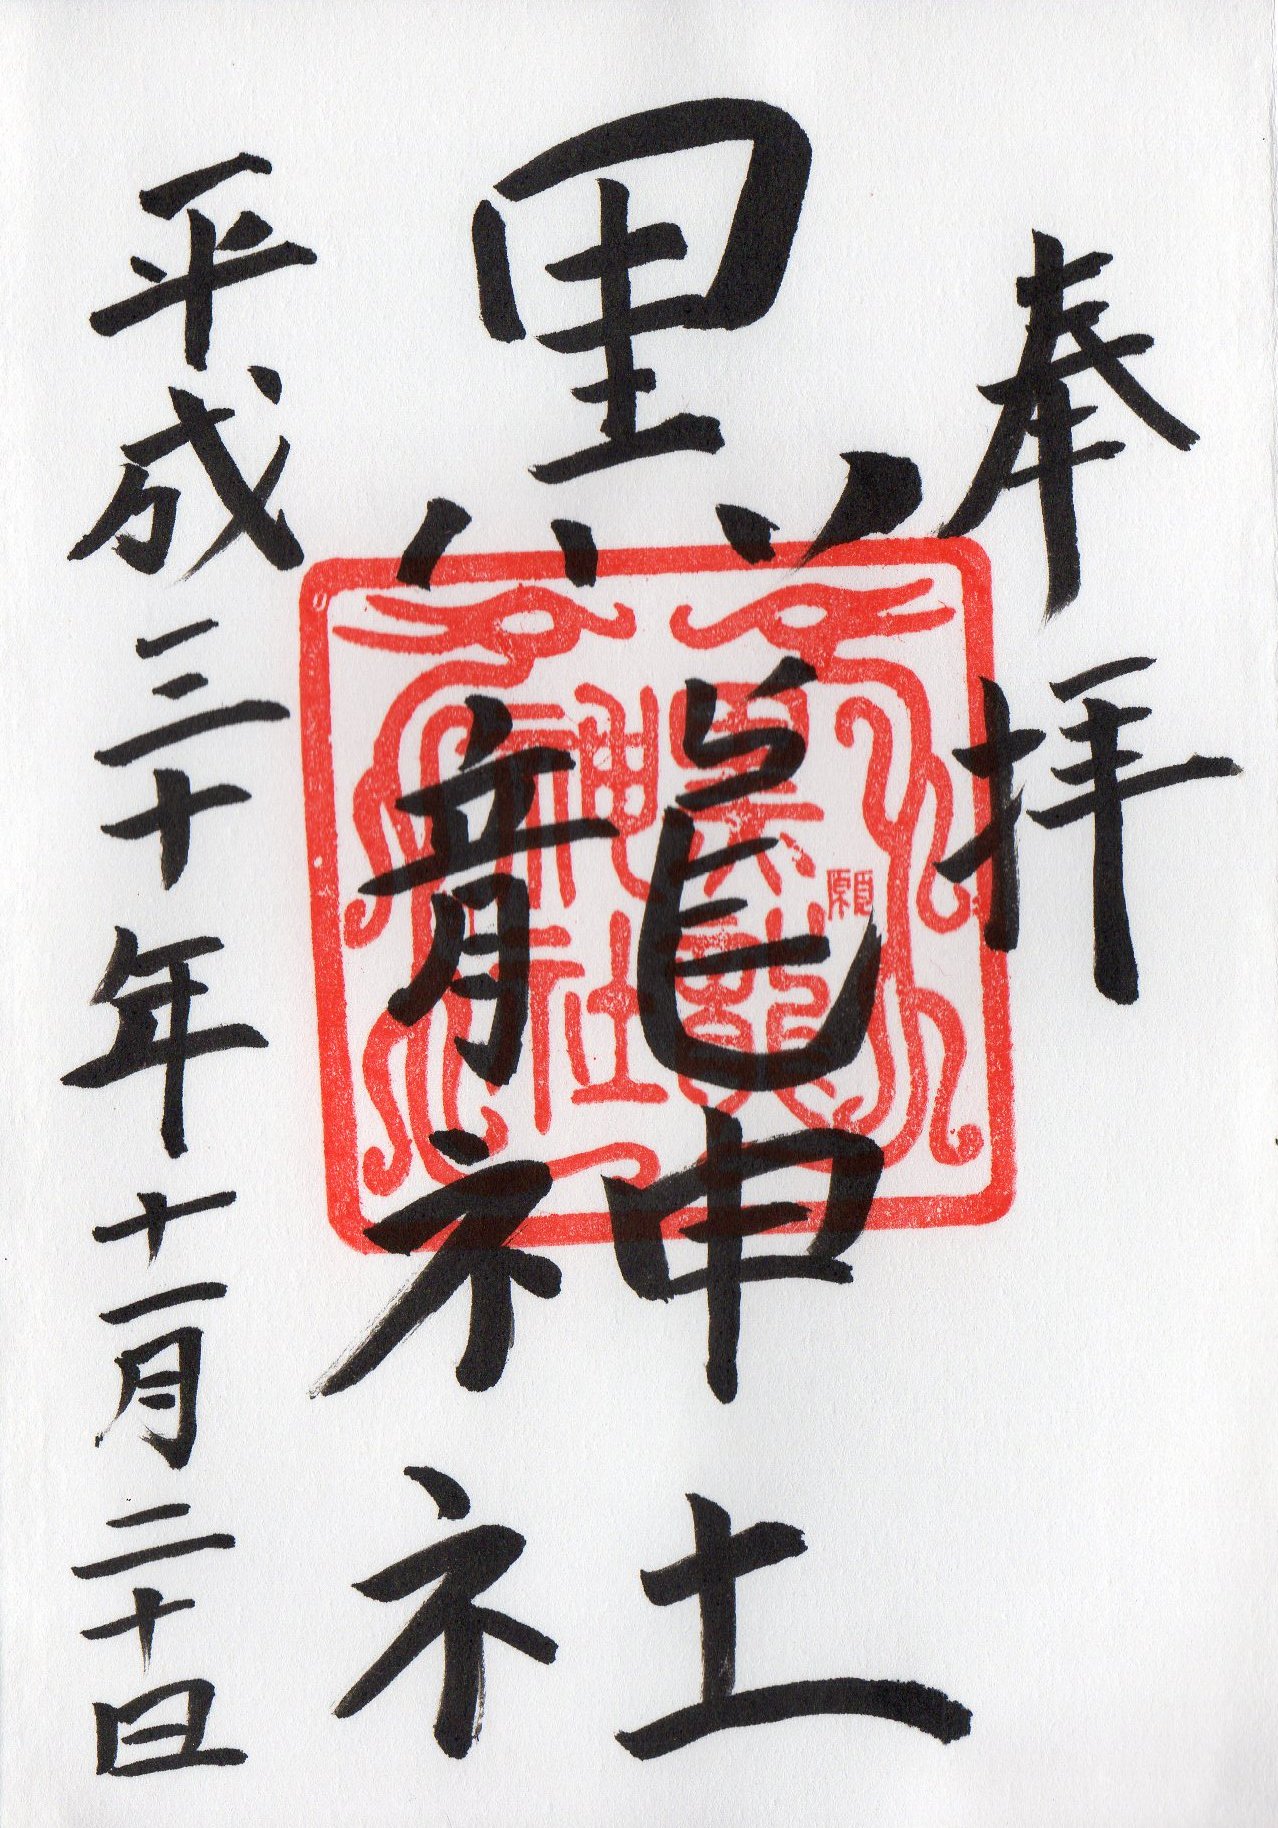 奉拝
黒龍神社
黒龍
神社
願
平成三十年十一月二十日